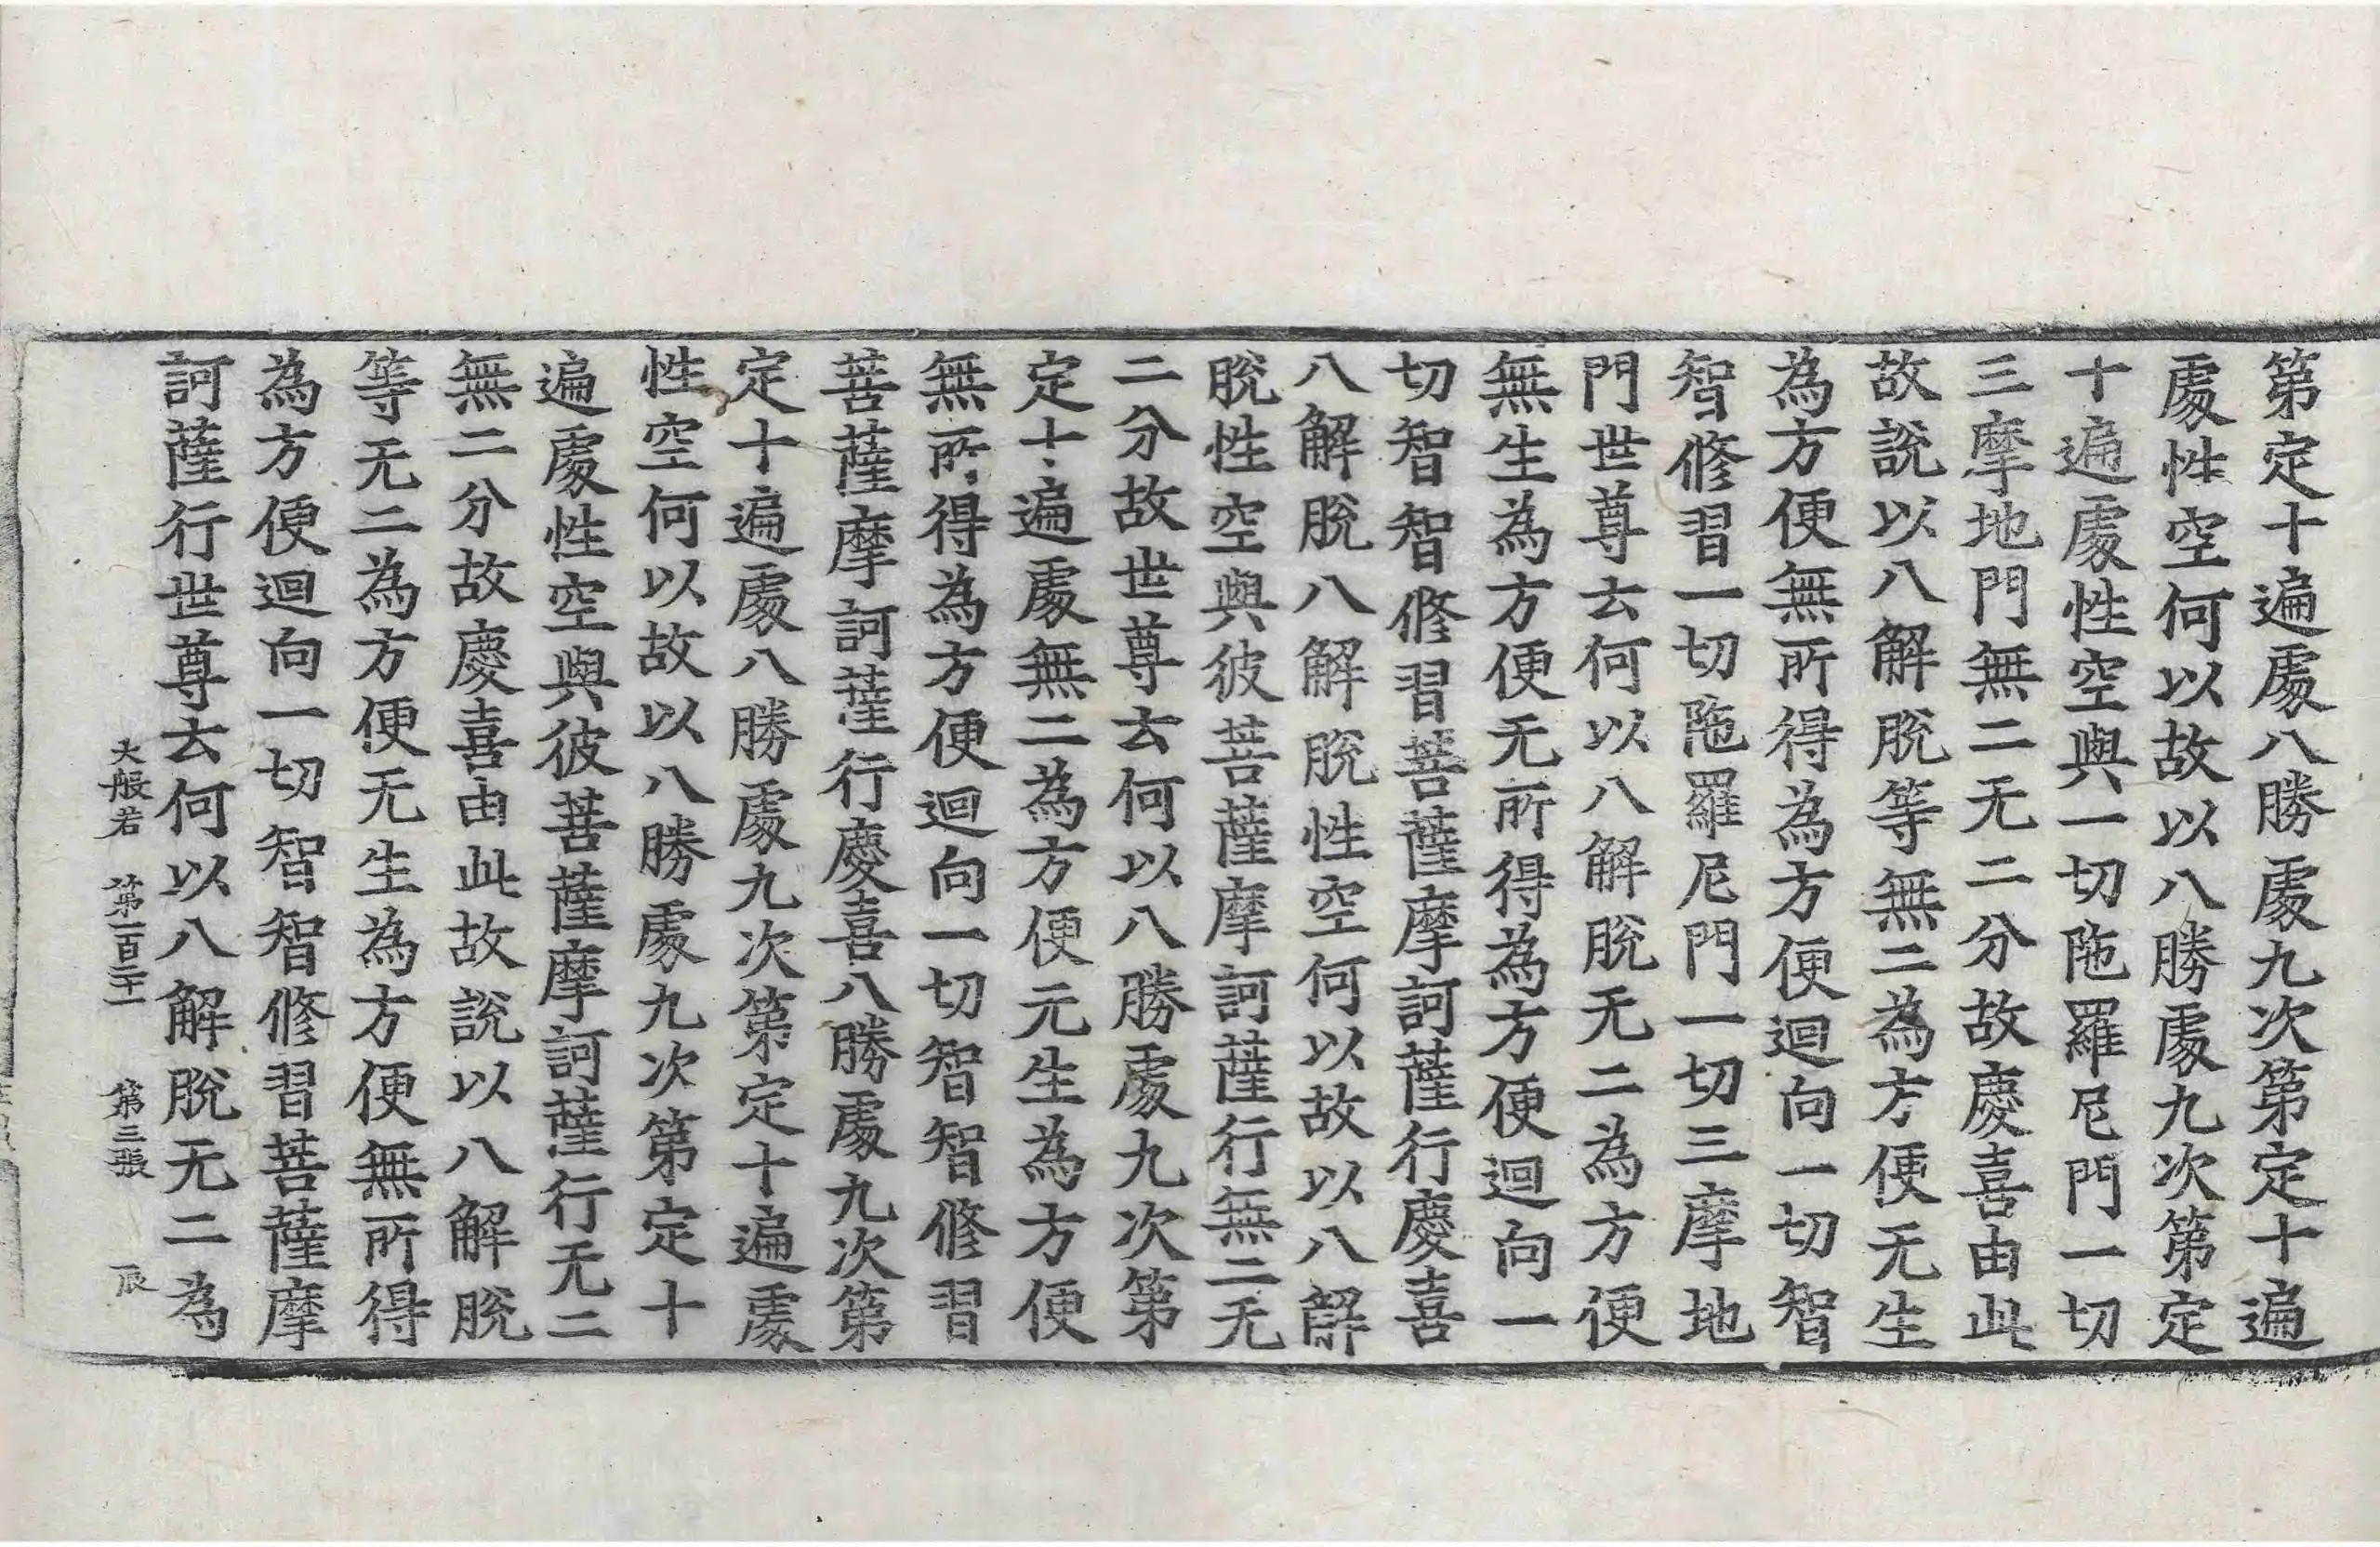 第定十遍處八勝處九次第定十遍
處性空何以故以八勝處九次第定
十遍處性空與一切陁羅尼門一切
三摩地門無二无二分故慶喜由此
故說以八解脫等無二為方便无生
為方便無所得為方便迴向一切智
智修習一切陁羅尼門一切三摩地
門世尊云何以八解脫无二為方便
無生為方便无所得為方便迴向一
切智智修習菩薩摩訶薩行慶喜
八解脫八解脫性空何以故以八解
脫性空與彼菩薩摩訶薩行無二无
二分故世尊云何以八勝處九次第
定十遍處無二為方便无生為方便
無所得為方便迴向一切智智修習
菩薩摩訶薩行慶喜八勝處九次第
定十遍處八勝處九次第定十遍處
性空何以故以八勝處九次第定十
遍處性空與彼菩薩摩訶薩行无二
無二分故慶喜由此故說以八解脫
等无二為方便无生為方便無所得
為方便迴向一切智智修習菩薩摩
訶薩行世尊云何以八解脫无二為
大般若 第一百二十一 第三張 辰